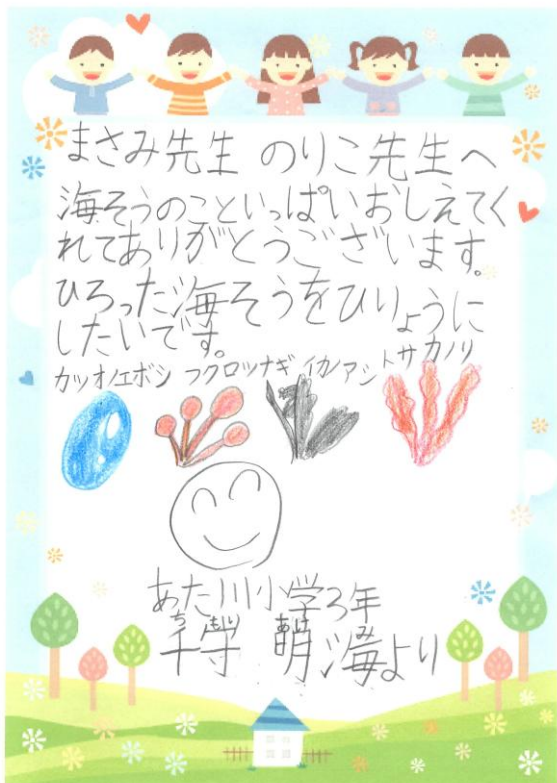 まさみ先生 のりこ先生へ
海そうのこといっぱいおしえてく
れてありがとうございます。
ひろった海そうをひりょうに
したいです。
カツオノエボシ フクロツナギ イカノアシ トサカノリ
あた川小学3年
ち もり あけ み
千守 明海より